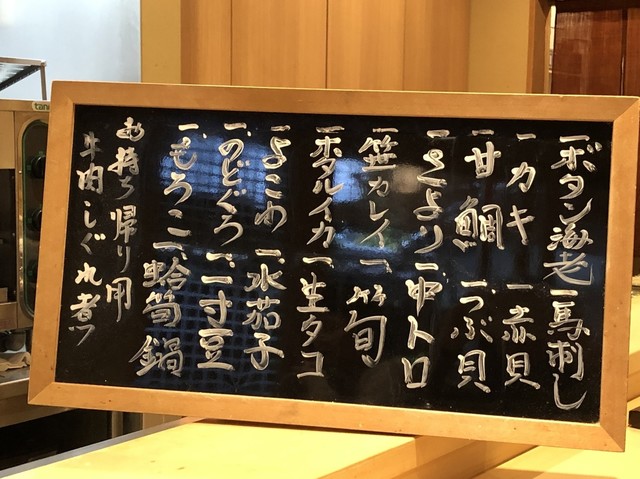 一、ボタン海老 一、馬刺し
一、カキ 一、赤貝
一、甘鯛 一、つぶ貝
一、さより 一、中トロ
一、笹カレイ 一、竹旬
一、ホタルイカ 一、生タコ
一、よこわ 一、水茄子
一、のどぐろ 一、一寸豆
一、もろこ 一、蛤筍鍋
お持ち帰り用
牛肉しぐれ煮